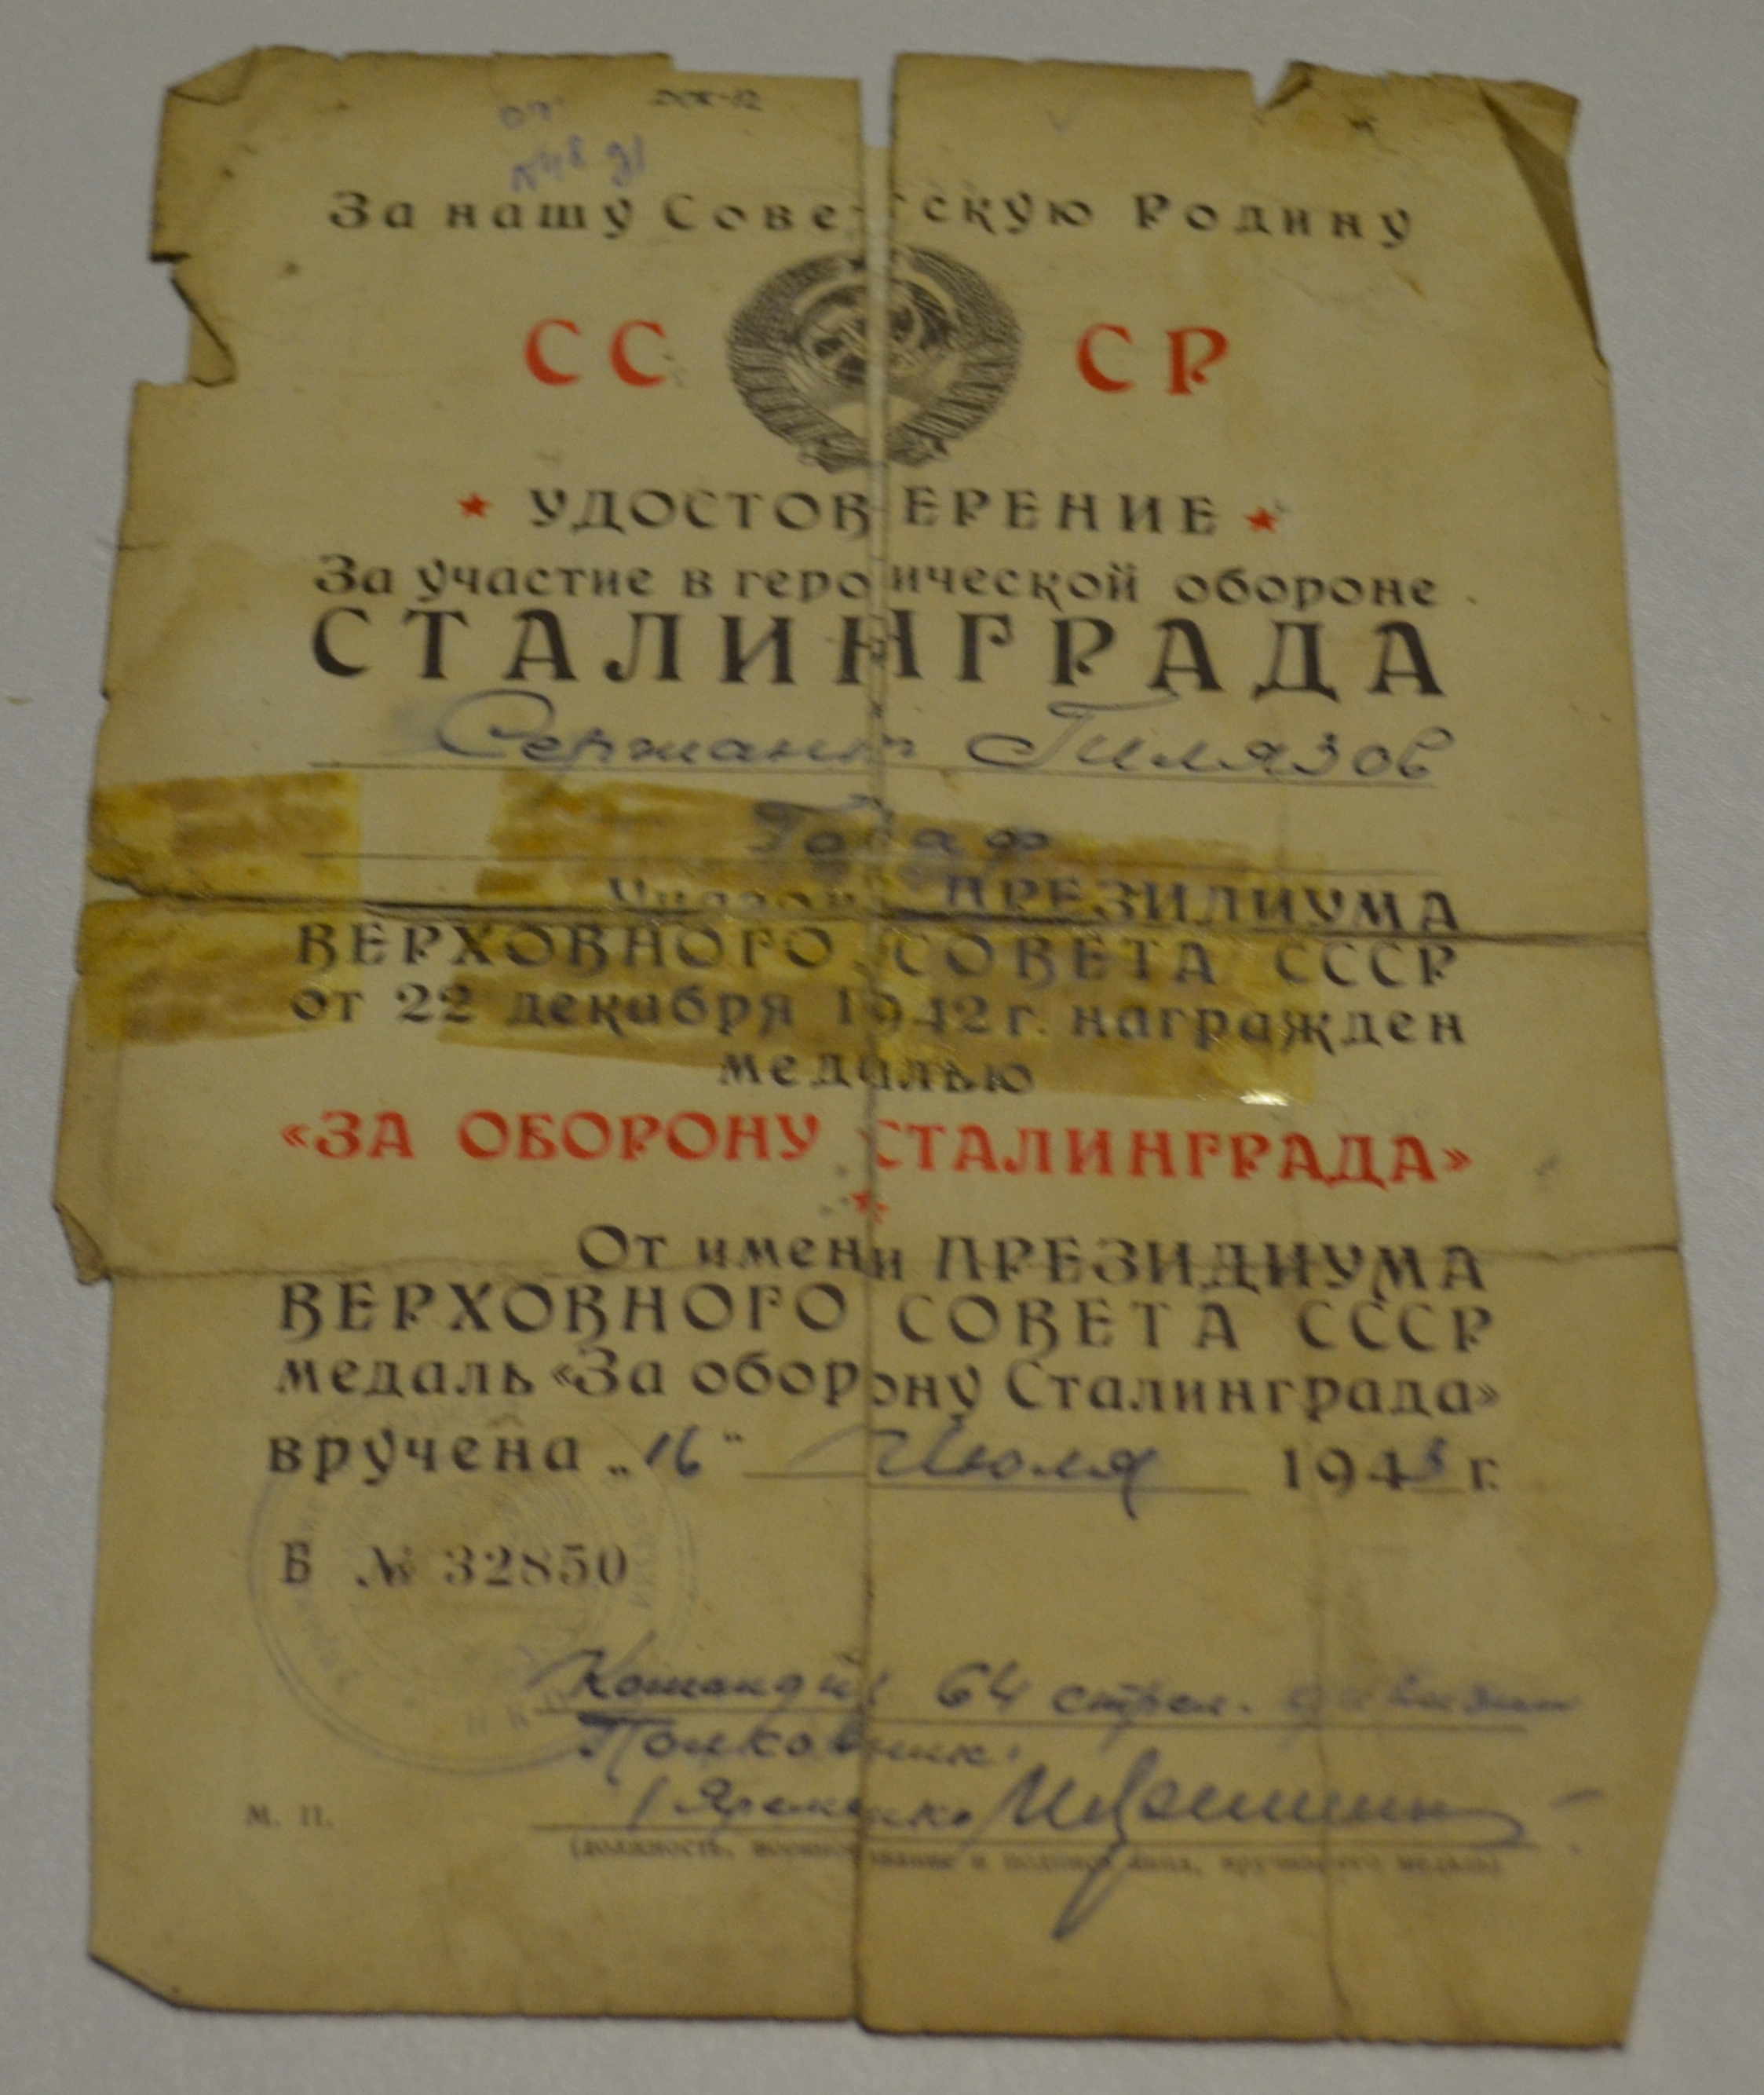 За нашу Советскую Родину
СС СР
УДОСТОВЕРЕНИЕ
За участие в героической обороне
СТАЛИНГРАДА
Сержант Гилязов
Указом ПРЕЗИДИУМА
ВЕРХОВНОГО СОВЕТА СССР
от 22 декабря 1942 г. награжден
медалью
«ЗА ОБОРОНУ СТАЛИНГРАДА»
От имени ПРЕЗИДИУМА
ВЕРХОВНОГО СОВЕТА СССР
медаль «За оборону Сталинграда»
вручена „16“ Июля 1943 г.
Б № 32850
Командир 64 стрел. дивизии
Полковник
М. П.
(должность, военное звание и подпись лица, вручившего медаль)